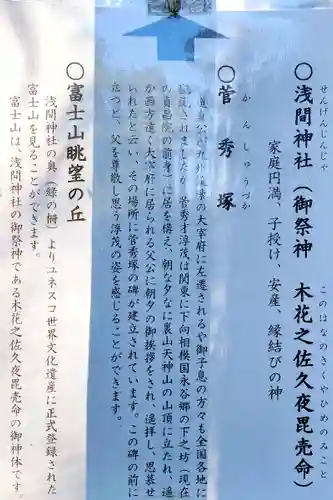 ○浅間神社（御祭神　木花之佐久夜毘売命）
せんげんじんじゃ
このはなのさくやひめのみこと
家庭円満、子授け、安産、縁結びの神
○菅秀塚
かんしゅうづか
道真公が九州の大宰府に左遷されるや御子息の方々も全国各地
に配流されましたが、菅秀才淳茂は関東に下向相模国永谷郷の下之坊（現在
の貞昌院の前身）に居を構え、朝な夕なに裏山天神山の山頂に立たれ、遙
か西方遠く大宰府に居られる父公に朝夕の御挨拶をされ、遙拝し、思慕せ
られたと云い、その場所に菅秀塚の碑が建立されています。この碑の前に
立つと、父を尊敬し思う淳茂の姿を感じることができます。
○富士山眺望の丘
浅間神社の真（緑の柵）よりユネスコ世界文化遺産に正式登録された
富士山を見ることができます。
富士山は、浅間神社の御祭神である木花之佐久夜毘売命の御神体です。